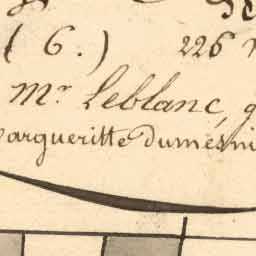 ( 6. ) 226
Mr Leblanc,
Margueritte Dumesni